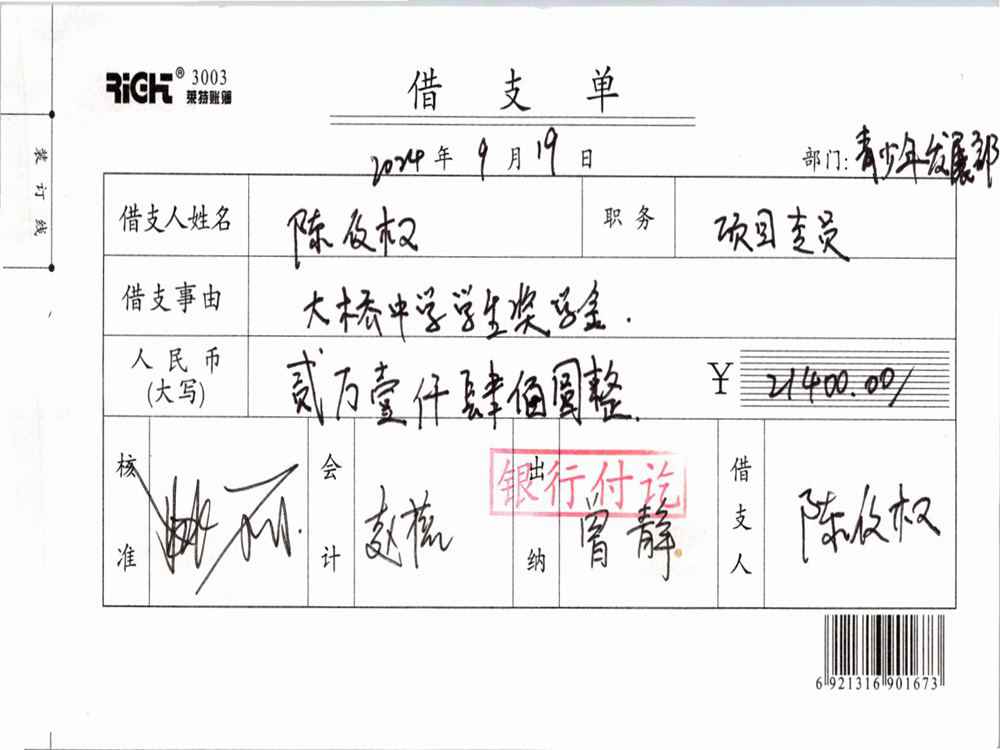 RiGHT® 3003
莱特账簿
借支单
2024年9月19日
部门:青少年发展部
装订线
借支人姓名 陈俊权 职务 项目专员
借支事由 大桥中学学生奖学金.
人民币(大写) 贰万壹仟肆佰圆整. ¥ 21400.00/
核准 会计 赵蕊 出纳 曾静 借支人 陈俊权
银行付讫
6 921316 901673